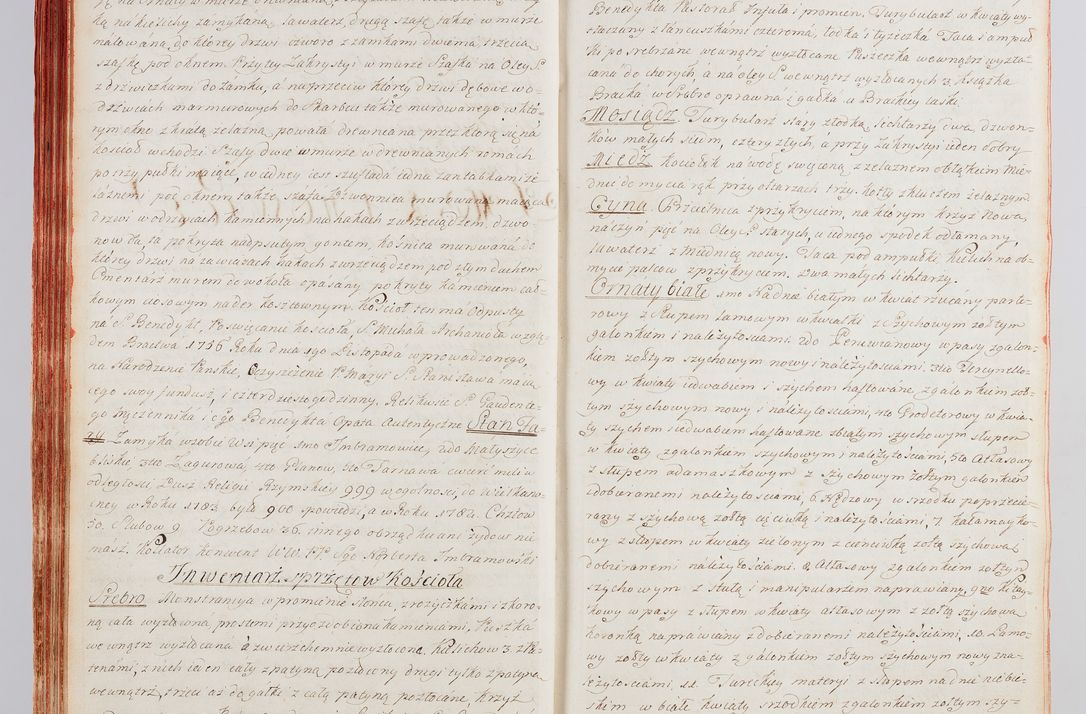 ką na Kielichy zamykaną, Lawaterz, drugą szafę także w murze
málowáną, do ktorey drzwi czworo z zamkami dwiema, trzecią
szafkę pod oknem. Przy tey Zakrystyi w murze Szafka na Oley S.
z drzwiczkami do zamku, á naprzeciw ktorey drzwi dębowe w o-
dzwiach marmurowych do Skarbcu także murowanego w któ-
rym okno z kratą żelazną, powałá drewniana przez ktorą się na
kosciol wchodzi. Szafy dwie w murze w drewnianych romách
po trzy pułki máiące, w iedney iest szuflada iedna z antabkami że-
láznemi pod oknem także szafa. Dzwonnica murowana maiącá
drzwi w odrzwiach kamiennych na hakach z wrzeciądzem, dzwo-
now 3, pokryta nadpsutym gontem, kosnica murowaná do
ktorey drzwi na zawiasach hakach z wrzeciądzem pod złym dachem
Cmentarz murem do wokoła opasany pokryty kamieniem cał-
kowym ciosowym nader kosztownym. Kościoł ten má Odpusty
ná S. Benedykt, Poswięcanie kościoła, S. Michała Archanioła wzglę-
dem Bractwá 1756 Roku dnia 19o Listopadá wprowadzonego,
na Národzenie Páńskie, Oczyszczenie N. Maryi S. Stanisławá maią-
cego swoy fundusz, i czterdziesto godzinny. Relikwie S. Gaudente-
go Męczennika i S. Benedykta Opata Autentyczne Stan Pa-
rafii Zamyká w sobie Wsi pięć 1mo Imbramowice, 2do Małyszyce
bliskie 3tio Zagurowá, 4to Planow, 5to Tarnawa ćwierć mili w
odległości Dusz Religii Rzymskiey 999 w ogolności, do Wielkano-
cney w Roku 1783 było 900 spowiedzi, a w Roku 1782. Chrztow
50. Slubow 9 Pogrzebow 36. innego obrządku ani żydow nie
mász. Kollator konwent WW. PP. S.go Norberta Imbramowski
Inwentarz sprzętow Kościoła
Srebro. Monstrancya w promienie słońca, z rożyczkámi i z koro-
ną cała wyzłocona prostemi przyozdobiona kamieniami, Puszká
wewnątrz wyzłácana á zwierzchem nie wyzłocona. Kielichow 3. z Pá-
tenámi, z nich ieden cały z pátyną pozłocony drugi tylko z patyną
wewnątrz, trzeci aż do gałki z całą patyną pozłocane, krzyż
Benedykta Pastorał Infuła i promien. Turybularz w kwiaty wy-
rzazany z łancuszkami czterema, łodka i łyżeczka Taca i ampuł-
ki posrebrzane wewnątrz wyzłocane Puszeczka wewnątrz wyzła-
cana do chorych, a na oley S. wewnątrz wyzłocanych 3. Książka
Bracka w Srebro oprawná i gałka u Brackiey laski.
Mosiądz. Turybularz stary z łodką, lichtarzy dwa, dzwon-
kow małych siedm, cztery złych, a przy Zakrystyi ieden dobry
Miedź kociołek na wodę święconą z żelaznem obłąkiem Mie-
dnic do mycia rąk przy ołtarzach trzy kotły z kluczem żelaznym
Cyna. Chrzcielnica z przykryciem, na którym krzyż Nowa,
naczyn pięć na Oley S. starych, u iednego spodek odłamany,
Lawaterz z Miednicą nowy. Taca pod ampułki Kielich na ob-
mycie palcow z przykryciem. Dwa małych lichtarzy.
Ornaty białe 1mo Na dnie białym w kwiat rzucany parte-
rowy z Słupem Lamowym w kwiatki z Szychowym żołtym
galonkiem i należytościami. 2do Peruwianowy w pasy z galon-
kiem żołtym szychowym nowy i należytościami. 3tio Tercynello-
wy w kwiaty iedwabiem i szychem haftowane z galonkiem żoł-
tym szychowym nowy i należytościami, 4to Grodetorowy w kwia-
ty szychem i iedwabiem haftowane z białym szychowym słupem
w kwiaty z galonkiem szychowym i należytościámi, 5to Atłasowy
z słupem adamaszkowym z szychowym żołtym galonkiem
i dobieranemi należytościami, 6. Kędzowy w srodku poprzecie-
rany z szychową żołtą cięciwką i należytościami, 7. kałamayko-
wy z słupem w kwiaty zielonym z cienciwką żołtą szychową i
dobieranemi należytościami. 8 Atłasowy z galonkiem żołtym
szychowym z stułą i manipularzem naprawiany, 9no kitay-
kowy w pasy z słupem w kwiaty atłasowym z żołtą szychową
koronką naprawiany z dobieranemi należytościámi, 10. Lamo-
wy żołty w kwiaty z galonkiem żołtym szychowym nowy z na-
leżytościami, 11. Tureckiey materyi z słupem na dnie niebie-
skim w białe kwiaty srzodkiem z galonkiem żołtym szy-